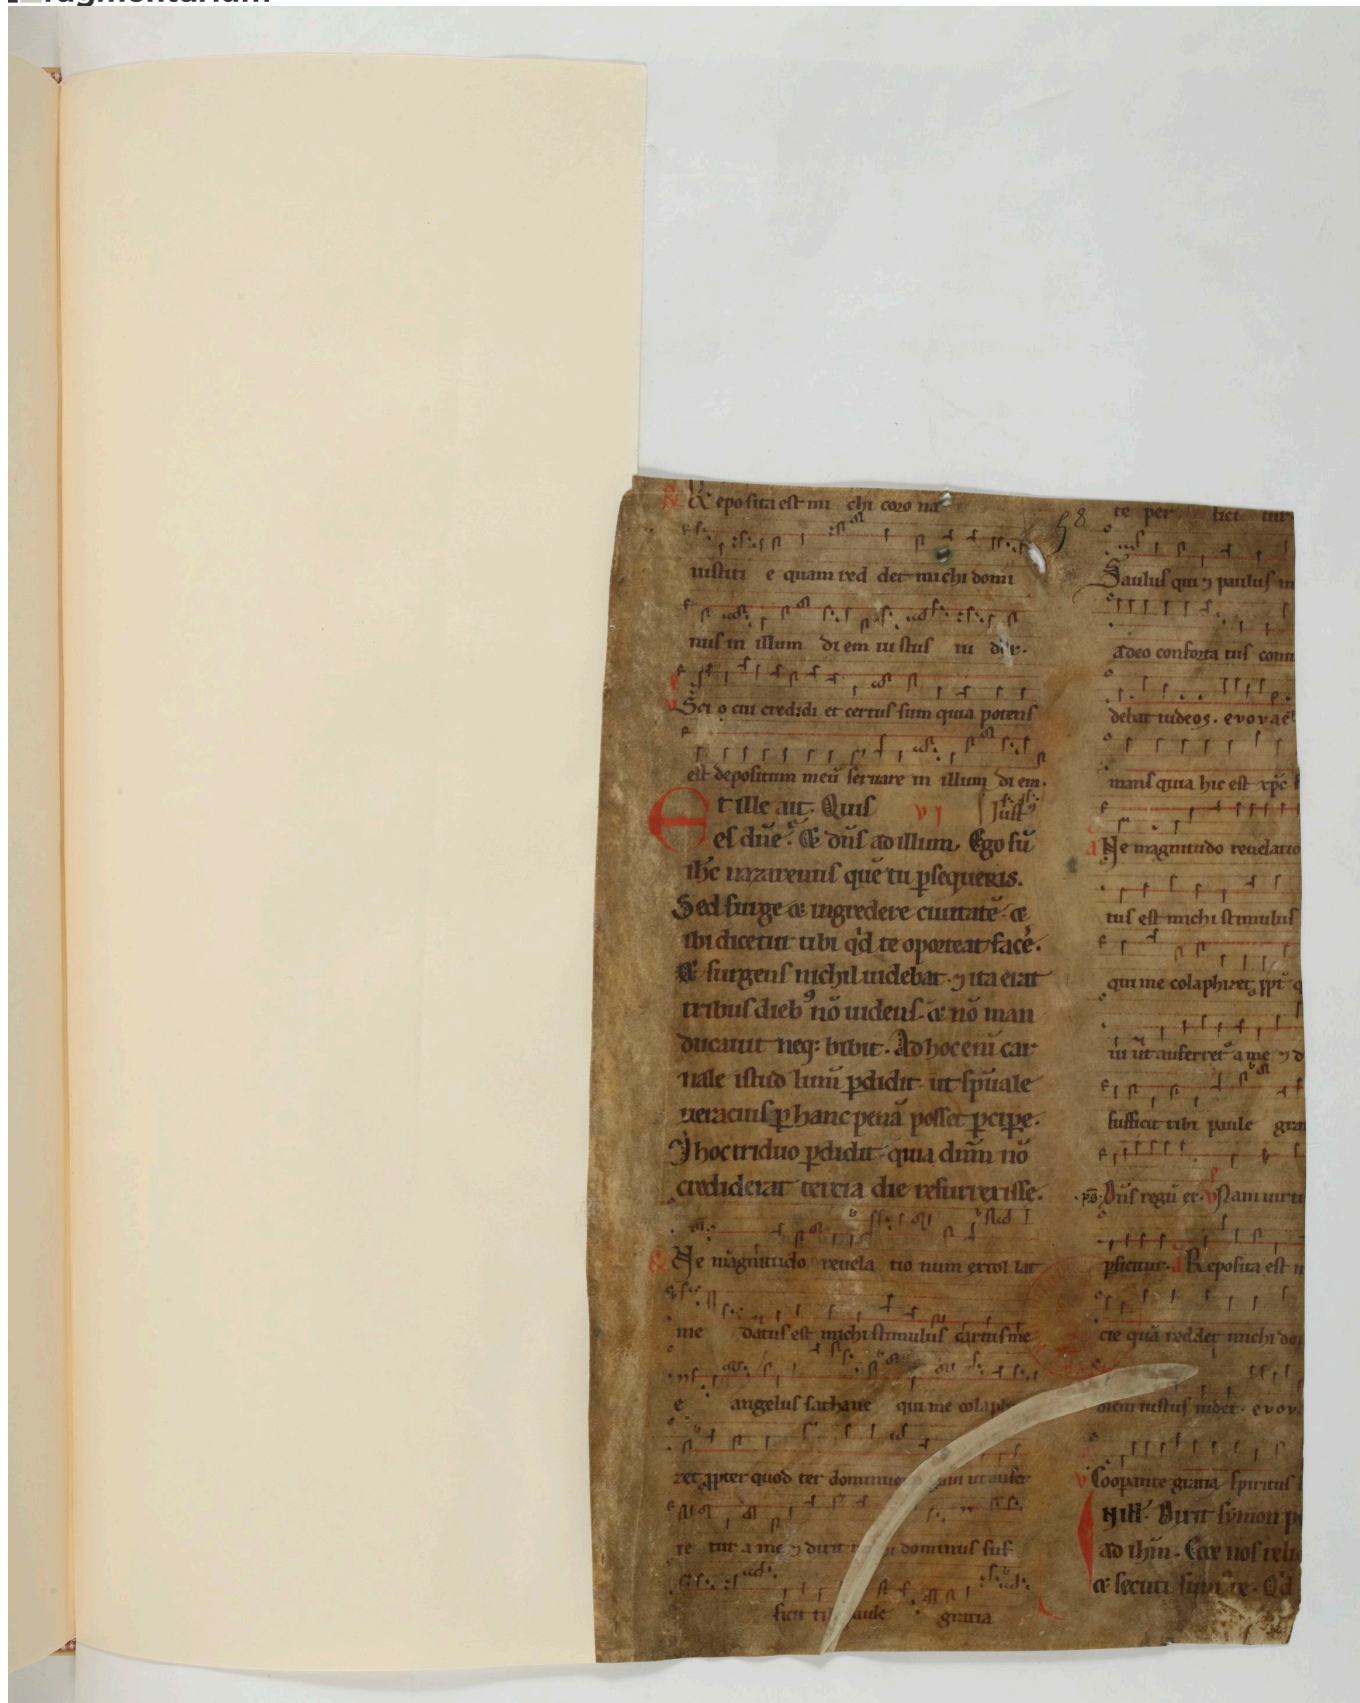 Fragmentarium
Reposita est mi chi coro na
iustiti e quam red det michi domi
nus in illum di em iustus iu dex.
Scio cui credidi et certus sum quia potens
est depositum meū seruare in illum di em.
Et ille ait. Quis VI Iust
es dn̄e. & dn̄s ad illum. Ego sū
ih̄c nazarenus quē tu ꝑsequeris.
Sed surge & ingredere ciuitatē. &
ibi dicetur tibi qd te oporteat facē.
& surgens nichil uidebat. ⁊ ita erat
tribus dieb nō uidens. & nō man
ducauit neq; bibit. Ad hoc eni car
nale istud lum̄ ꝑdidit. ut spūale
ueracius ꝑ hanc penā posset ꝑcipe.
I hoc triduo ꝑdidit. quia dn̄m nō
crediderat tercia die resurrexisse.
Ne magnitudo reuela tio num extol lat
me datus est michi stimulus carnis me
e angelus sathane qui me colaph
zet ꝓpter quod ter dominum ut aufer
re tur a me ⁊ dixit dominus suf
ficit ti aule gratia
58
te per fici tur.
Saulus qui ⁊ paulus
adeo conforta tus
debat iudeos. evovae
mans quia hic est xpc
a Ne magnitudo reuelatio
tus est michi stimulus
qui me colaphizet ꝓpt q
ut auferret a me ⁊ d
sufficit tibi paule gra
Dn̄s regū er. v Nam uirtu
ꝑficitur. a Reposita est
cie quā reddet michi do
diem iustus iudex. evov
v Cooꝑante gratia spiritus
Dixit symon p
ad ihm. Ecce nos reli
& secuti sum te. Qd